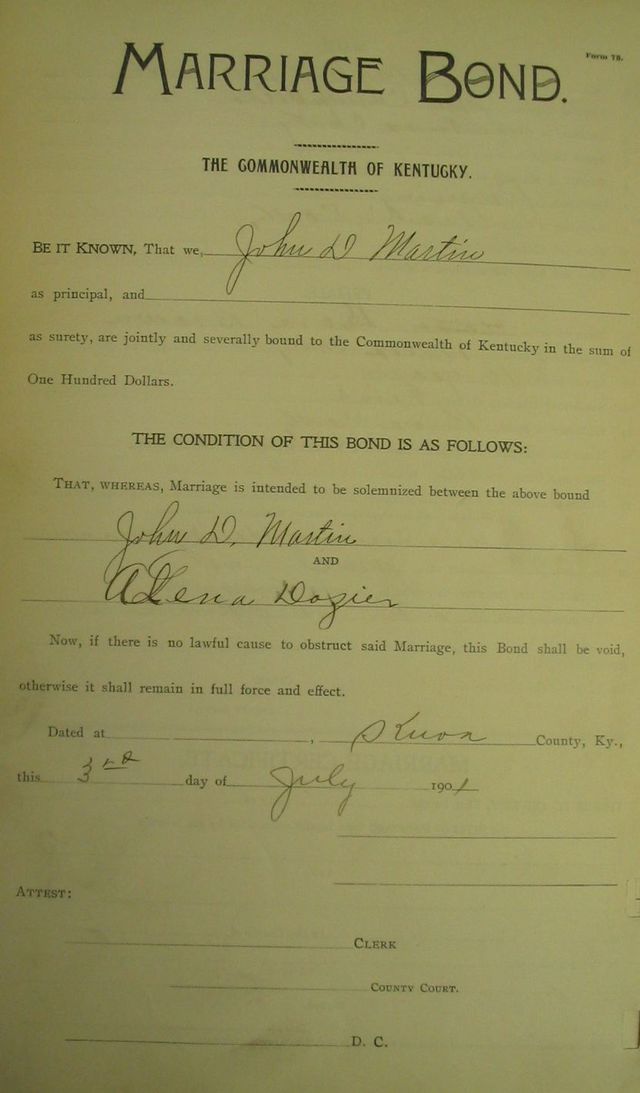 Form 78.
MARRIAGE BOND.
THE COMMONWEALTH OF KENTUCKY.
BE IT KNOWN, That we, John D Martin
as principal, and
as surety, are jointly and severally bound to the Commonwealth of Kentucky in the sum of
One Hundred Dollars.
THE CONDITION OF THIS BOND IS AS FOLLOWS:
THAT, WHEREAS, Marriage is intended to be solemnized between the above bound
John D. Martin
AND
Dozier
Now, if there is no lawful cause to obstruct said Marriage, this Bond shall be void,
otherwise it shall remain in full force and effect.
Dated at , Knox County, Ky.,
this 3rd day of July 1901
ATTEST:
CLERK
COUNTY COURT.
D. C.